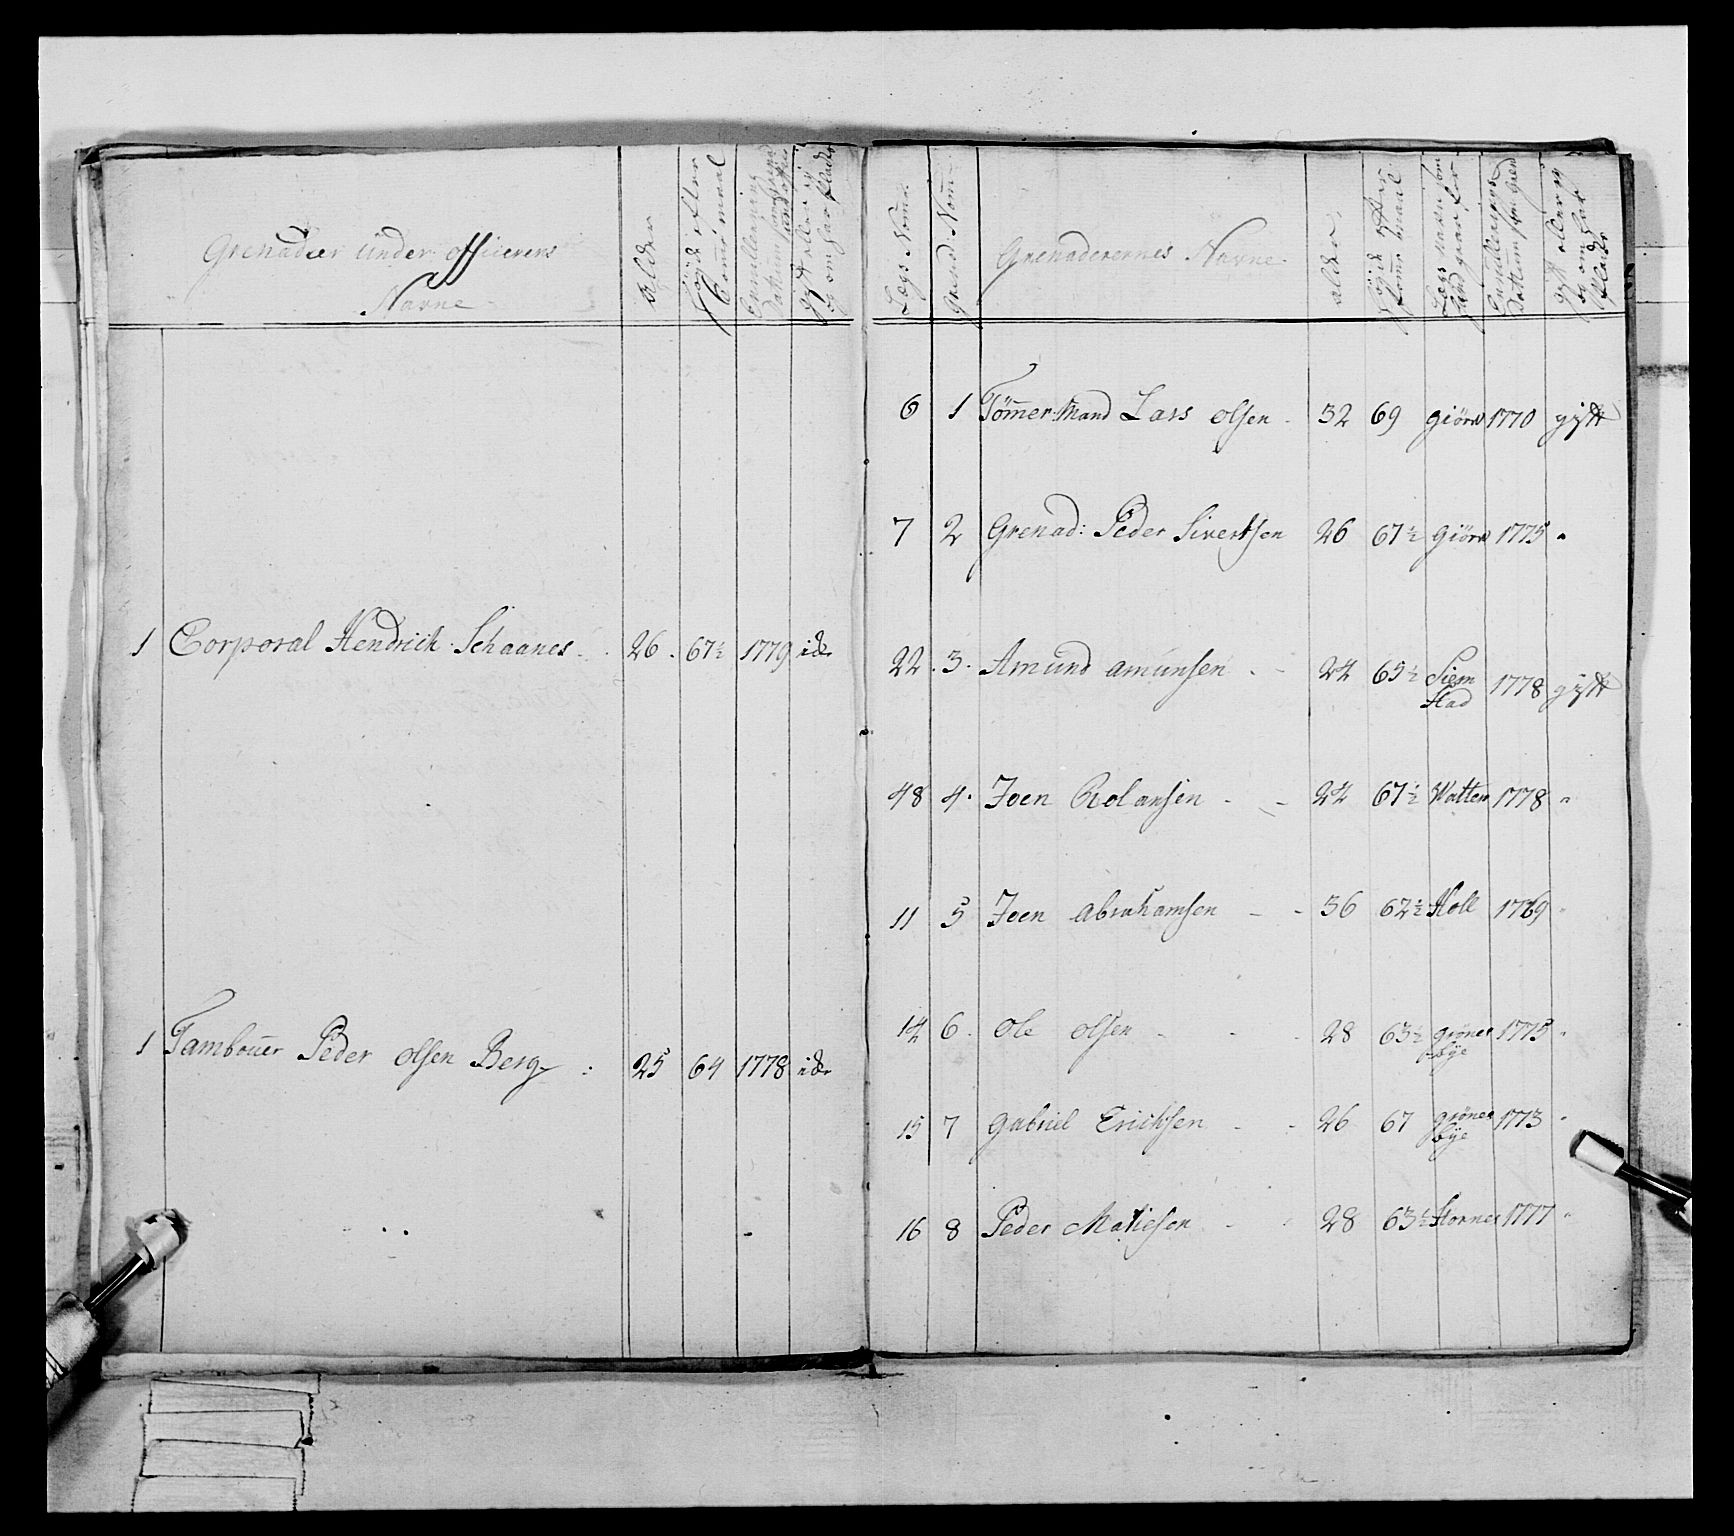 Grenader under officierens
Navne
Alder
Høÿde efter
maal
1 Corporal Hendrich Schaanes 26. 67½ 1779
1 Tambouer Peder olsen Berg 25 64 1778
Lægs Nom:
Grenaderernes Navne
alder
6 1 Tømmer Mand Lars olsen 32 69 giørv 1770 gift
7 2 Grenad: Peder Sivertsen 26 67½ Giørv 1775 "
22. 3. Amund amunsen 24 65½ Siem 1778 gift
stad
48 4. Joen Rolansen 24 67½ Watten 1778 "
11 5 Joen Abrahamsen 36 62½ Holl 1769 "
14 6. Ole olsen 28 63½ grønes 1775 "
bÿe
15 7 Gabriel Erichsen 26 67 grønes 1773 "
bÿe
16 8 Peder Matiesen 28 63½ Hornes 1777 "